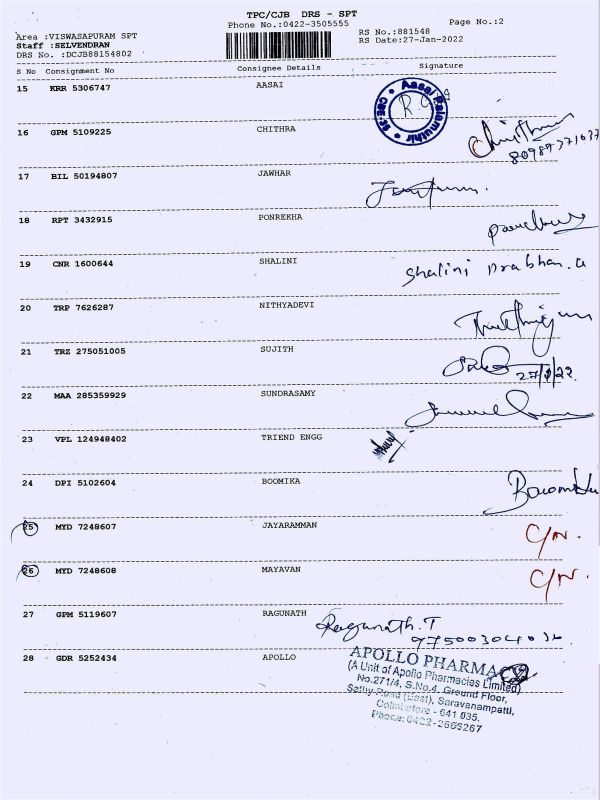 TPC/CJB DRS - SPT
Phone No.:0422-3505555 Page No.:2
Area :VISWASAPURAM SPT RS No.:881548
Staff :SELVENDRAN RS Date:27-Jan-2022
DRS No. :DCJB88154802
S No Consignment No Consignee Details Signature
15 KRR 5306747 AASAI
Aasai Palamuthir
16 GPM 5109225 CHITHRA
17 BIL 50194807 JAWHAR
18 RPT 3432915 PONREKHA
19 CNR 1600644 SHALINI Shalini Prabhan.a
20 TRP 7626287 NITHYADEVI
21 TRZ 275051005 SUJITH
27/1/22
22 MAA 285359929 SUNDRASAMY
23 VPL 124948402 TRIEND ENGG
24 DPI 5102604 BOOMIKA
25 MYD 7248607 JAYARAMMAN C/N.
26 MYD 7248608 MAYAVAN C/N.
27 GPM 5119607 RAGUNATH Ragunath.T
28 GDR 5252434 APOLLO
APOLLO PHARMA
(A Unit of Apollo Pharmacies Limited)
No.271/4, S.No.4, Ground Floor,
Sathy Road (East), Saravanampatti,
Coimbatore - 641 035.
Phone: 0422-2666267